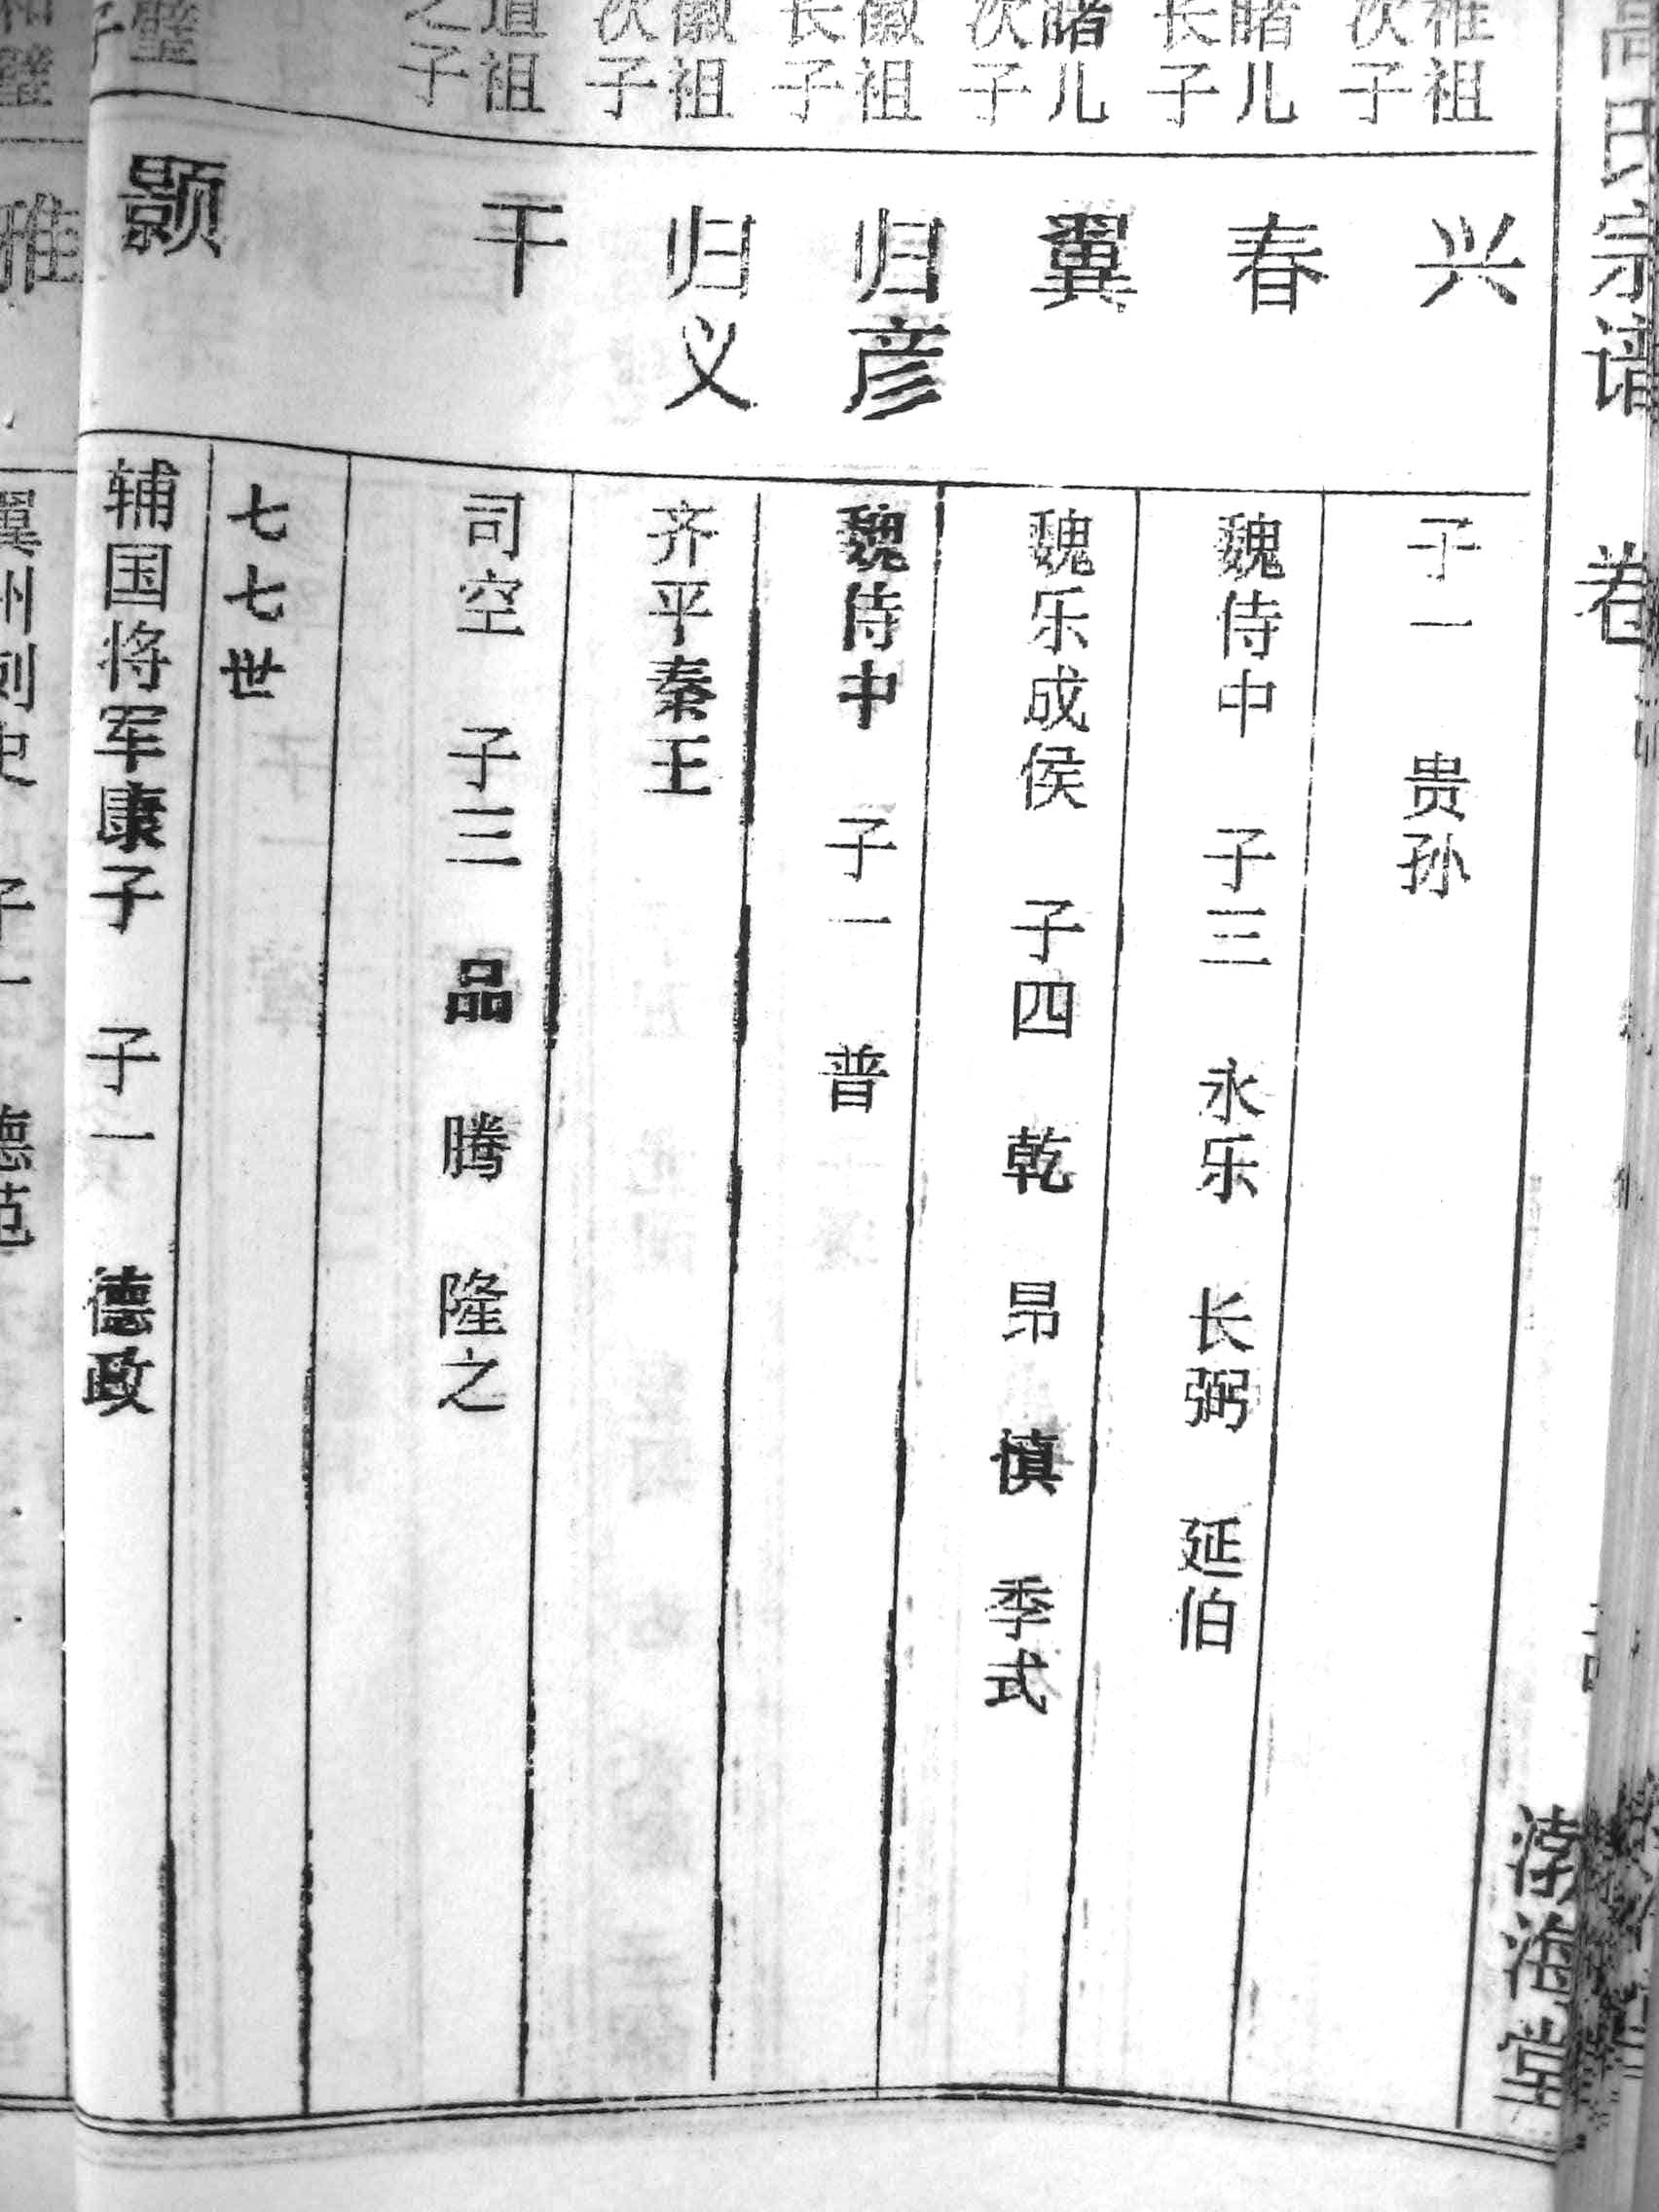 高氏宗谱 卷
渤海堂
稚祖
次子
兴
子一 贵孙
曙儿
长子
春
魏侍中 子三 永乐 长弼 延伯
曙儿
次子
翼
魏乐成侯 子四 乾 昂 慎 季式
徽祖
长子
归彦
魏侍中 子一 普
徽祖
次子
归义
齐平秦王
道祖
之子
干
司空 子三 品 腾 隆之
七七世
璧
子
颢
辅国将军康子 子一 德政
和璧
雅
翼州刺史 子一 德范